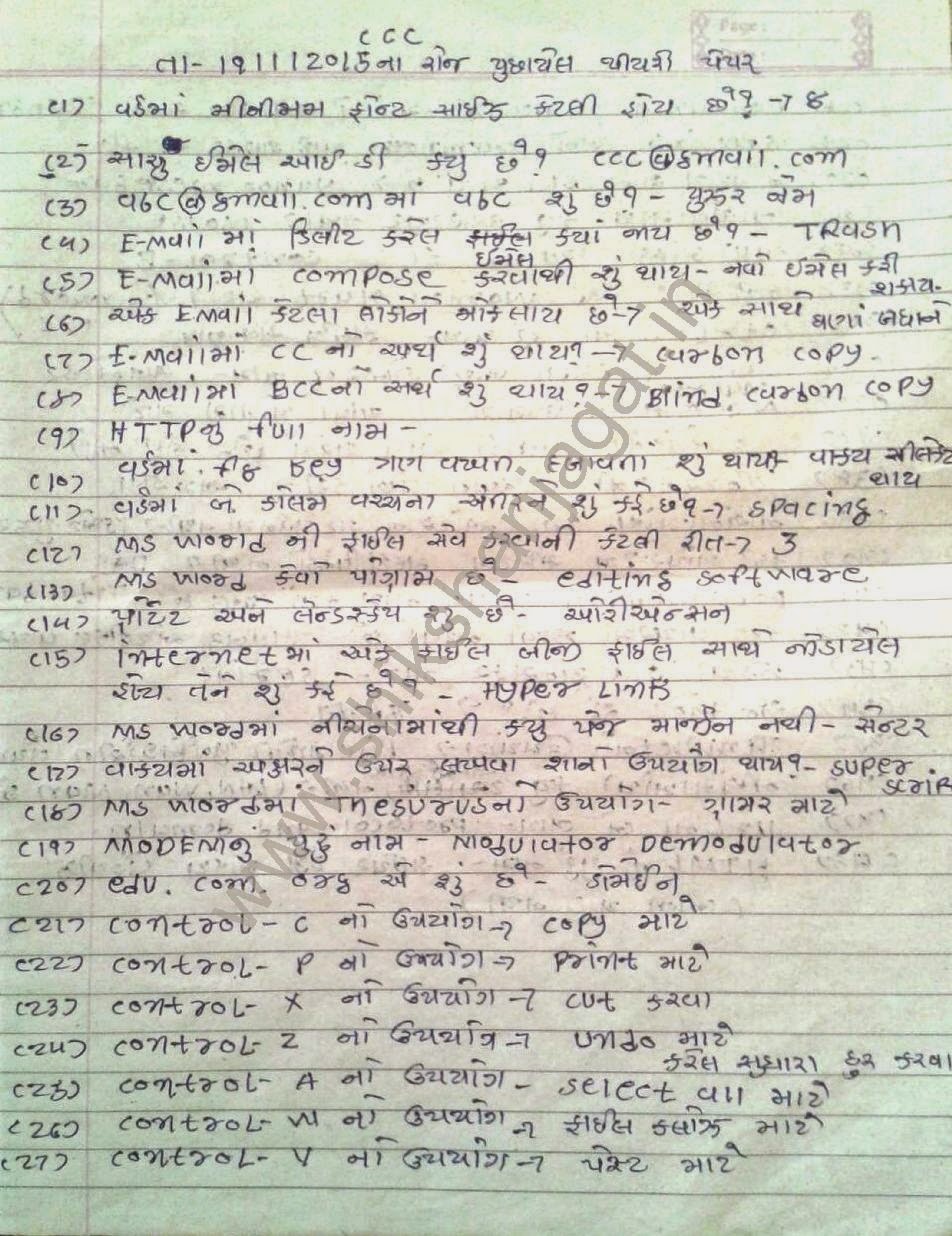 CCC
તા- 19/11/2015ના રોજ પુછાયેલ થીયરી પેપર
(1) વર્ડમાં મીનીમમ ફોન્ટ સાઈઝ કેટલી હોય છે? → 8
(2) સાચું ઈમેલ આઈ ડી ક્યું છે? ccc@gmail.com
(3) abc@gmail.com માં abc શું છે? - યુઝર નેમ
(4) E-mail માં ડિલીટ કરેલ ઈમેલ ક્યાં જાય છે? - TRash
(5) E-mailમાં compose કરવાથી શું થાય - નવો ઈમેલ કરી શકાય.
(6) એક Email કેટલા લોકોને મોકલાય છે → એક સાથે ઘણાં બધાને
(7) E-mailમાં CC નો અર્થ શું થાય? → carbon copy.
(8) E-mailમાં BCCનો અર્થ શું થાય? → Blind carbon copy
(9) HTTPનું full નામ -
(10) વર્ડમાં F8 key ત્રણ વખત દબાવતાં શું થાય - વાક્ય સીલેક્ટ થાય
(11) વર્ડમાં બે કોલમ વચ્ચેના અંતરને શું કહે છે? → spacing
(12) MS Word ની ફાઈલ સેવ કરવાની કેટલી રીત → 3
(13) MS Word કેવો પોગ્રામ છે - editing software
(14) પોર્ટેટ અને લેન્ડસ્કેપ શું છે - ઓરીએન્સન
(15) Internetમાં એક ફાઈલ બીજી ફાઈલ સાથે જોડાયેલ
હોય તેને શું કહે છે? - Hyper Link
(16) MS Wordમાં નીચેનામાંથી ક્યું પેજ માર્જીન નથી - સેન્ટર
(17) વાક્યમાં અક્ષરને ઉપર લખવા શાનો ઉપયોગ થાય? - super script
(18) MS Wordમાં Thesurusનો ઉપયોગ - ગ્રામર માટે
(19) MODEMનું પુરું નામ - Modulator Demodulator
(20) edu. com. org એ શું છે - ડોમેઈન
(21) control - C નો ઉપયોગ → copy માટે
(22) control - P નો ઉપયોગ → print માટે
(23) control - X નો ઉપયોગ → cut કરવા
(24) control - Z નો ઉપયોગ → undo માટે
કરેલ સુધારા દુર કરવા
(25) control - A નો ઉપયોગ - select all માટે
(26) control - W નો ઉપયોગ → ફાઈલ ક્લોઝ માટે
(27) control - V નો ઉપયોગ → પેસ્ટ માટે
Page:
www.shikshanjagat.in